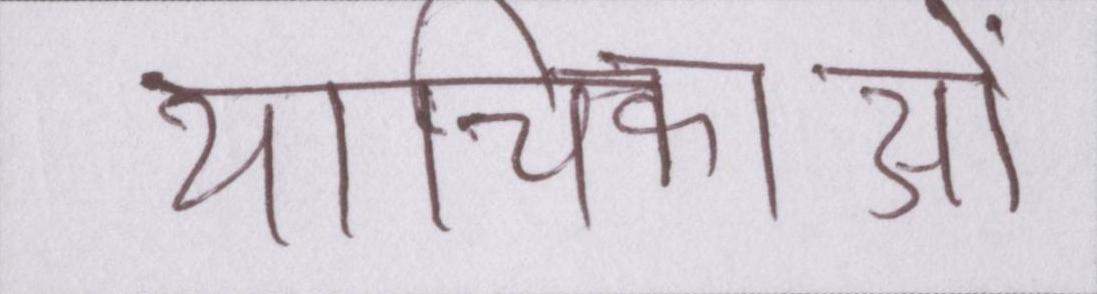 याचिकाओं